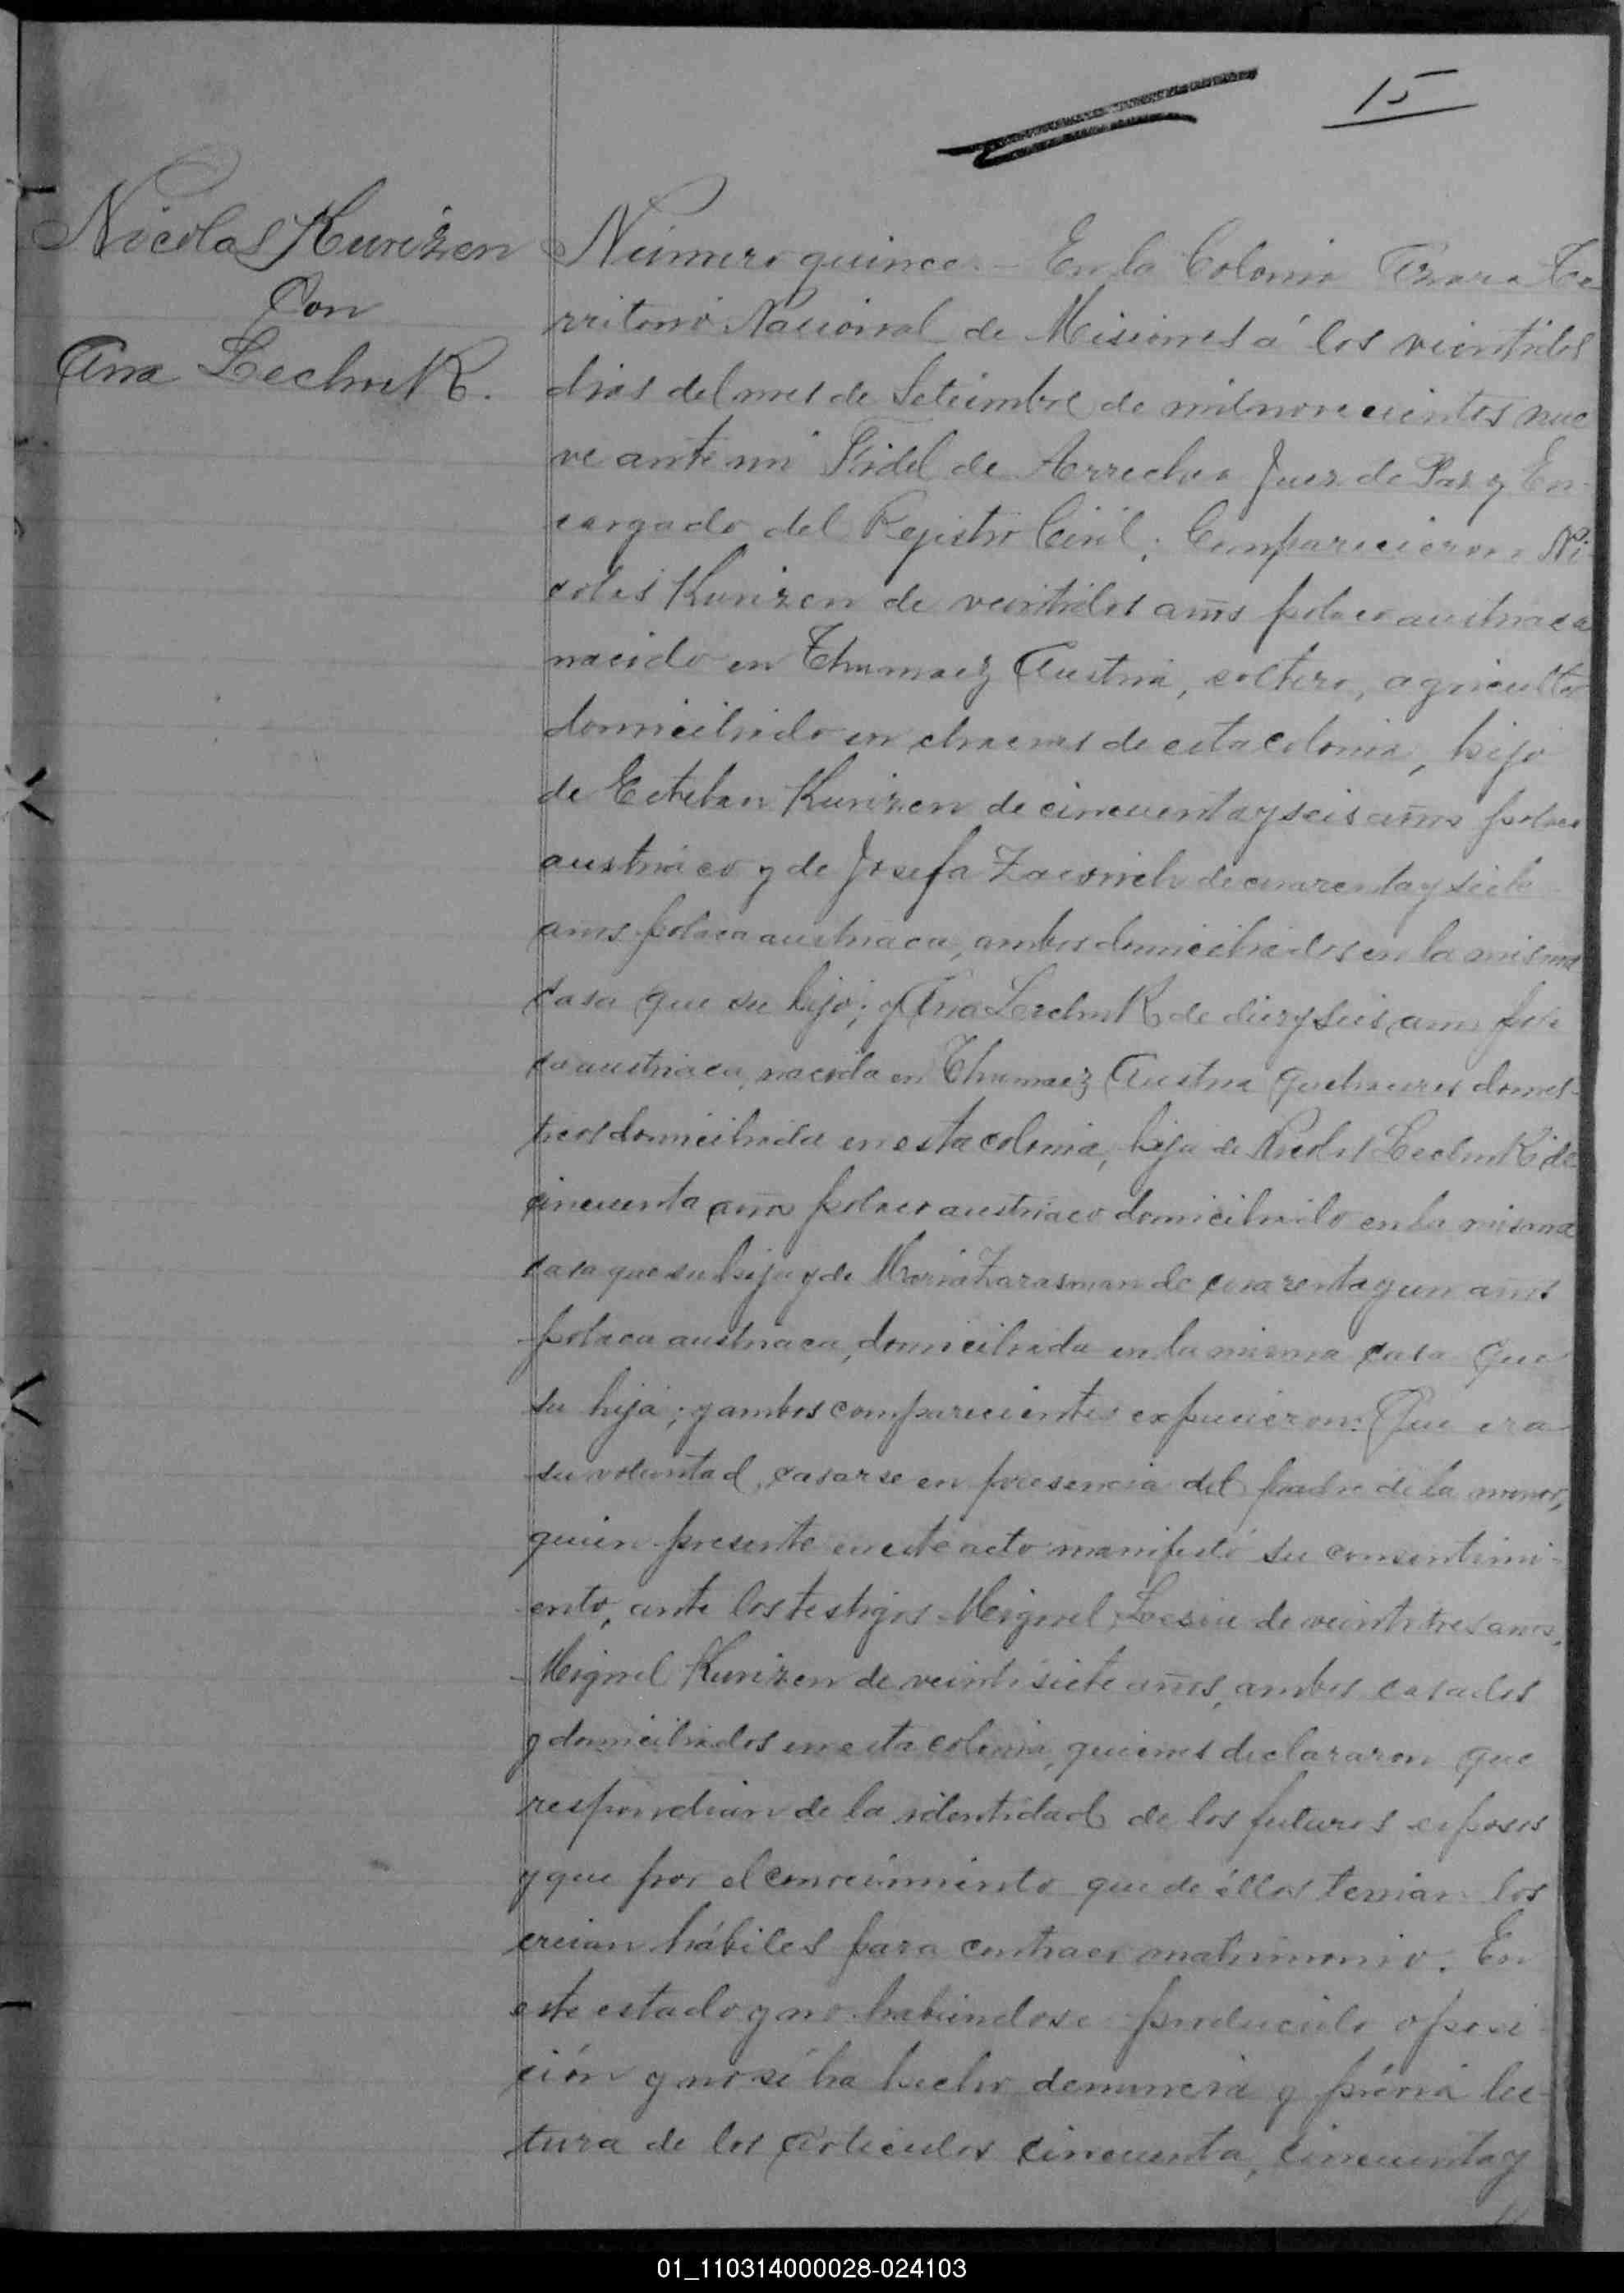 15
Nicolas Kurizen
Con
Ana Lechuk.
Número quince.- En la Colonia Azara Te
rritorio Nacional de Misiones á los veintidos
dias del mes de Setiembre de mil novecientos nue
ve ante mi Fidel de Arrechea Juez de Paz y En-
cargado del Rejistro Civil; Comparecieron Ni
colas Kurizen de veintidos años polaco austriaco
nacido en Thumacz Austria, soltero, agricultor
domiciliado en chacras de esta colonia, hijo
de Esteban Kurizen de cincuenta y seis años polaco
austriaco y de Josefa de cuarenta y siete
años polaca austriaca, ambos domiciliados en la misma
casa que su hijo; y Ana Lechuk de diez y seis años pola
ca austriaca, nacida en Thumacz Austria quehaceres domés-
ticos domiciliada en esta colonia, hija de Nicolas Lechuk de
cincuenta años polaco austriaco domiciliado en la misma
casa que su hija y de Maria Zarasman de cuarenta y un años
polaca austriaca, domiciliada en la misma casa que
su hija; y ambos comparecientes expusieron: Que era
su voluntad casarse en presencia del padre de la menor,
quien presente en este acto manifestó su consentimi-
ento, ante los testigos Miguel de veintitres años,
Miguel Kurizen de veintisiete años, ambos casados
y domiciliados en esta colonia, quienes declararon que
respondian de la identidad de los futuros esposos
y que por el conocimiento que de éllos tenian los
creian hábiles para contraer matrimonio. En
este estado y no habiendose producido oposi-
ción y no sé ha hecho denuncia y prévia lec-
tura de los articulos cincuenta, cincuenta y
01_110314000028-024103